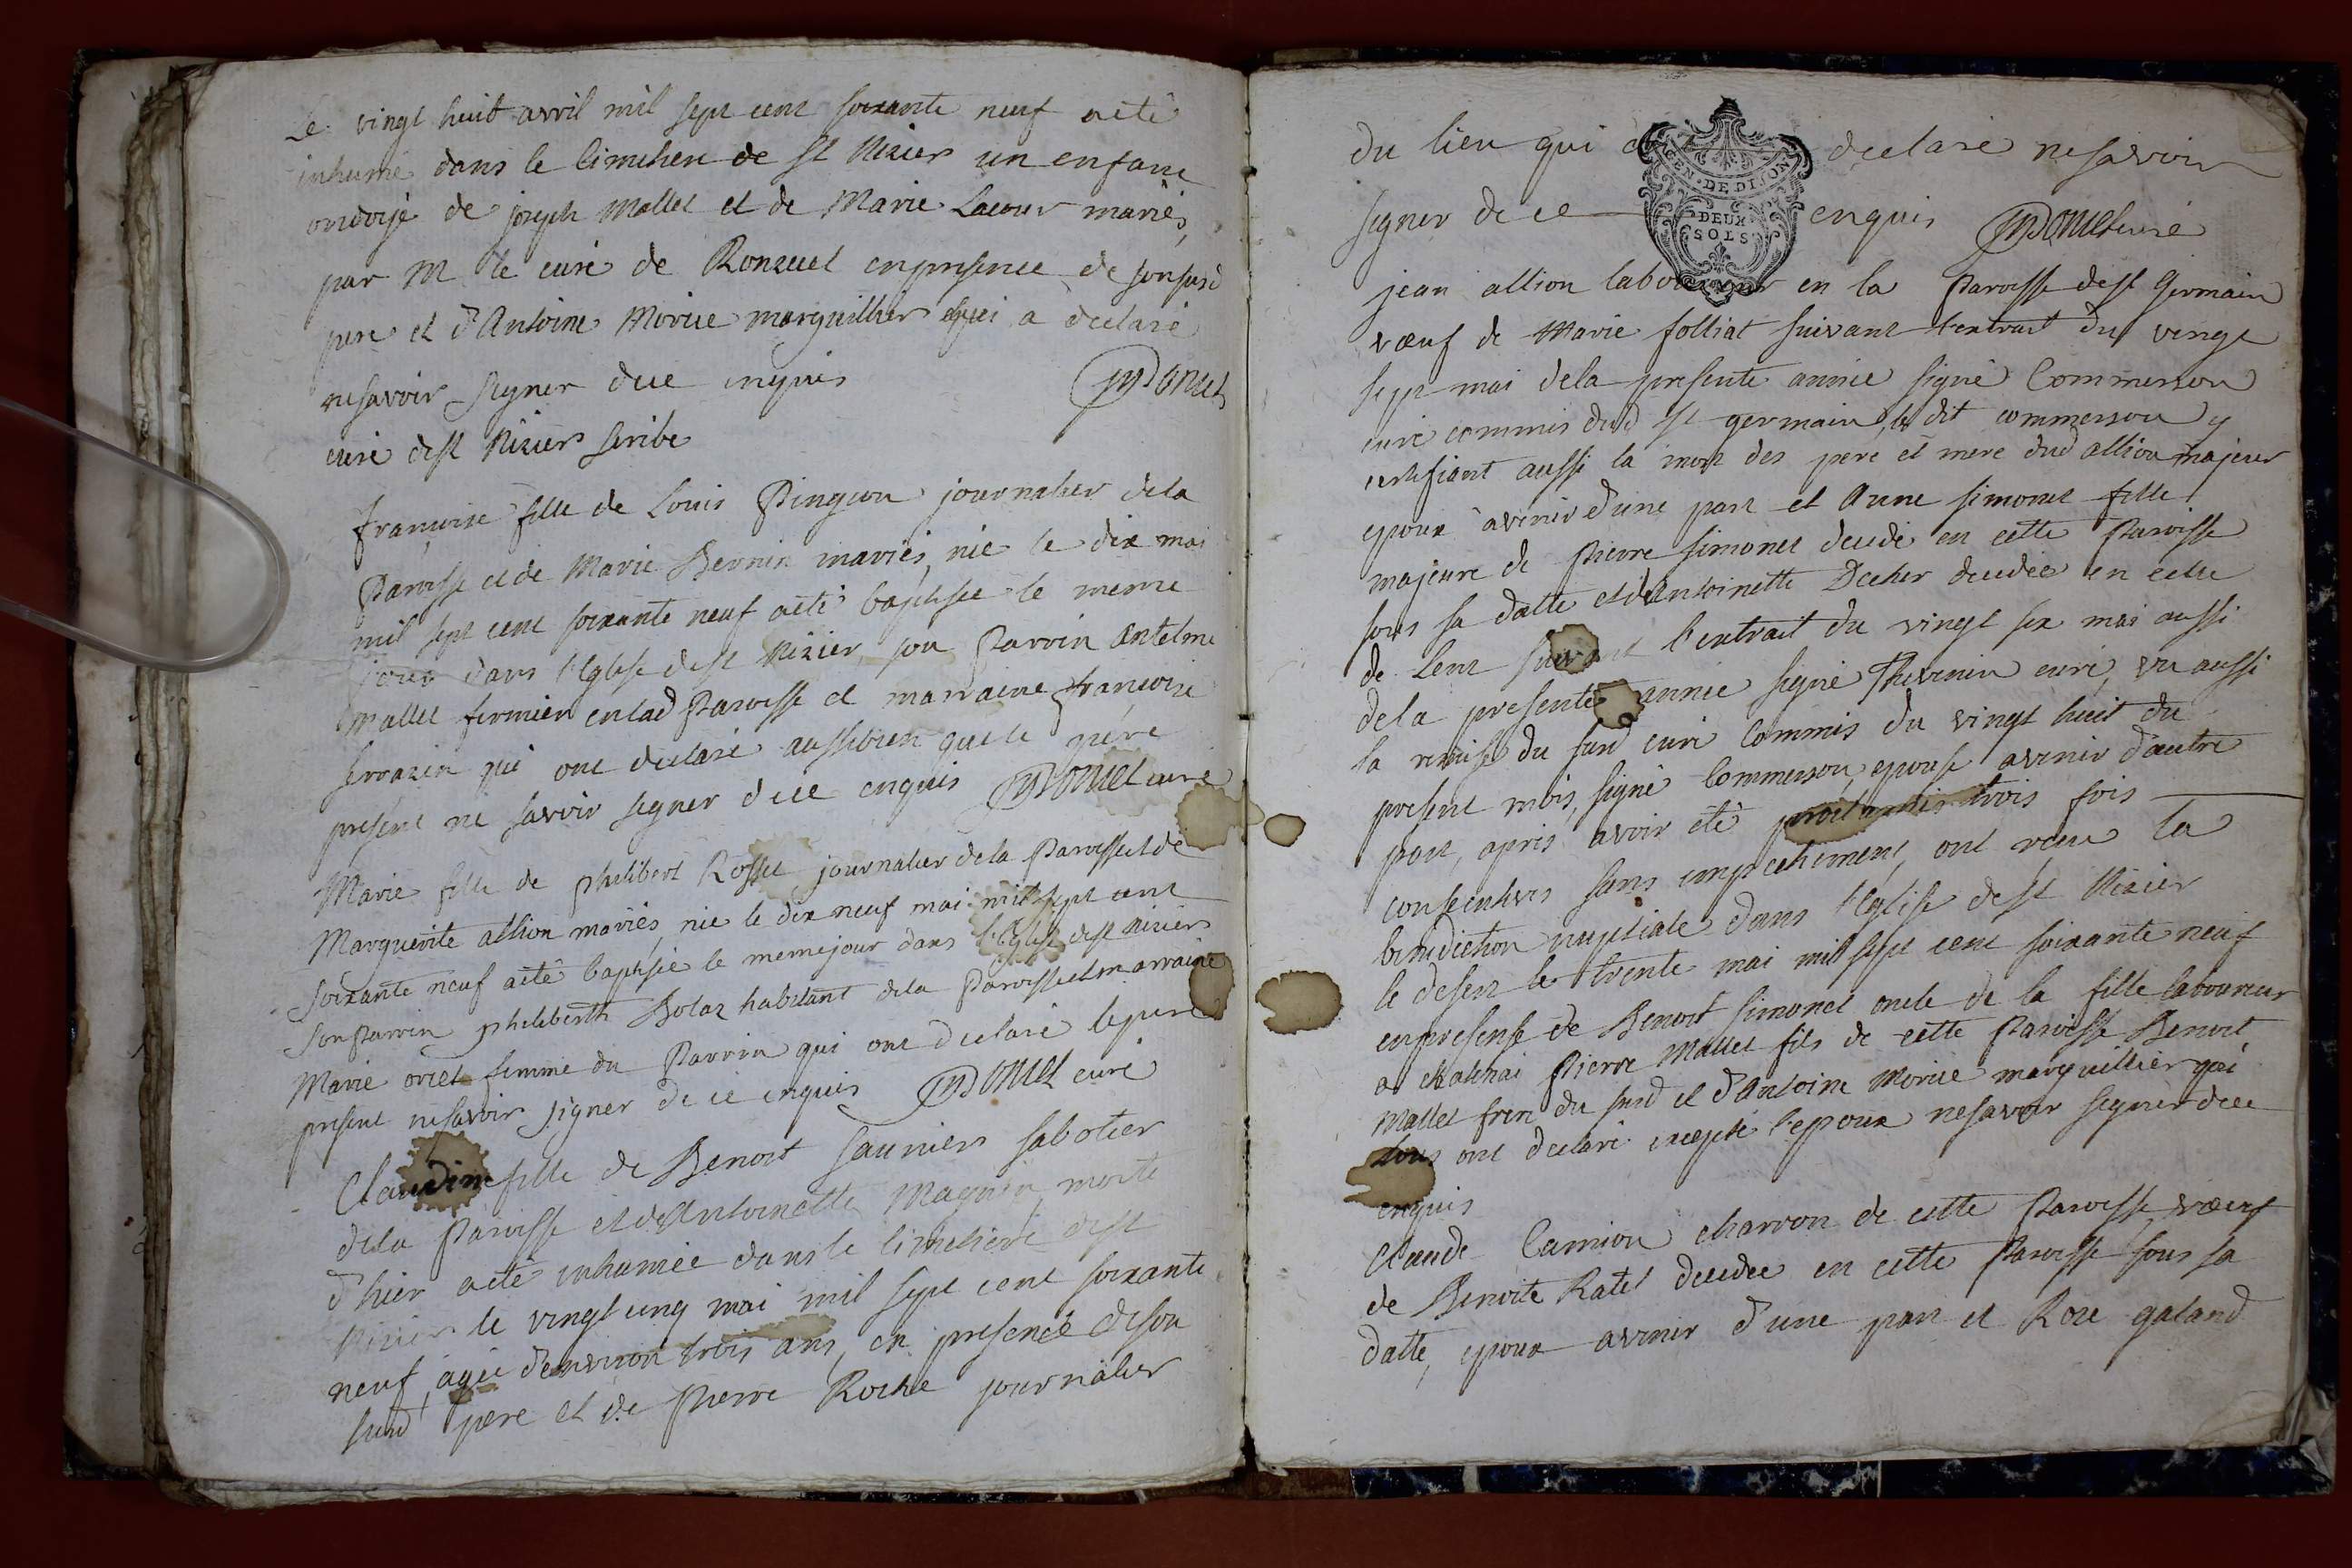 Le vingt huit avril mil sept cent soixante neuf aeté
inhumé dans le Cimetiere de St Nizier un enfant
ondoyé de joseph Mallet et de Marie Lacour mariés,
par M le curé de Ronzuel en presence de son susd
pere et d'Antoine Morice marguillier qui a declaré
ne savoir signer de ce enquis JMDonet
curé de St Nizier scribe
françoise fille de Louis Pingeon journalier dela
Paroisse et de Marie Bernin mariés, née le dix mai
mil sept cent soixante neuf aeté baptisée le meme
jour dans l'Eglise de St Nizier, son Parrin Antelme
Mallet fermier en lad Paroisse et marraine françoise
serrazin qui ont declaré aussi bien que le pere
present ne savoir signer de ce enquis JMDonet curé
Marie fille de philibert Rosset journalier dela Paroisse et de
Marguerite allion mariés, née le dix neuf mai mil sept cent
soixante neuf aeté baptisée le meme jour dans l'Eglise de st Nizier
son Parrin philiberth Bolaz habitant dela Paroisse et marraine
Marie oriel femme du Parrin qui ont declaré le pere
present ne savoir signer de ce enquis JMDonet curé
Claudine fille de Benoit saunier sabotier
dela Paroisse et d'Antoinette Magnin, morte
d'hier aeté inhumée dans le Cimetiere de st
Nizier le vingt cinq mai mil sept cent soixante
neuf, agée d'environ trois ans, en presence de son
susd pere et de Pierre Roche journalier
du lieu qui declaré ne savoir
signer de ce enquis JMDonet curé
GEN. DE DIJON
DEUX
SOLS
jean allion laboureur en la Paroisse de st Germain
vœuf de Marie folliat suivant l'extrait du vingt
sept mai dela presente année signé Commerson
curé commis dud st germain, le dit commerson y
certifiant aussi la mort des pere et mere dud allion majeur
epoux avenir d'une part et Anne simonet fille
majeure de Pierre simonet decedé en cette Paroisse
sous sa datte et d'Antoinette Decher decedée en celle
de Lent suivant l'extrait du vingt six mai aussi
dela presente année signé Thevenin curé, vu aussi
la remise du susd curé Commis du vingt huit du
present mois, signé Commerson, epouse avenir d'autre
part, apres avoir été proclamés trois fois
consecutives sans empechement, ont recu la
benediction nuptiale dans l'Eglise de st Nizier
le desert le trente mai mil sept cent soixante neuf
en presense de Benoit simonet oncle de la fille laboureur
a chatenai Pierre Mallet fils de cette Paroisse Benoit
Mallet frere du susd et d'Antoine Morice marguillier qui
tous ont declaré excepté l'epoux ne savoir signer de ce
enquis
Claude Camion charron de cette Paroisse vœuf
de Benoite Ratel decedée en cette Paroisse sous sa
datte, epoux avenir d'une part et Roze galand